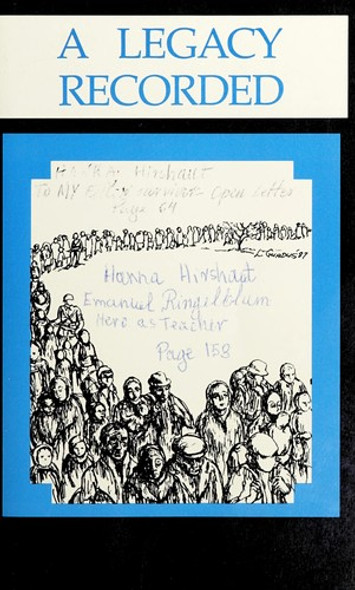 A LEGACY
RECORDED
Hanna Hirshaut
To My survivors - Open Letter
Page 64
L. GURDUS '87
Hanna Hirshaut
Emanuel Ringelblum
Hero as Teacher
Page 158